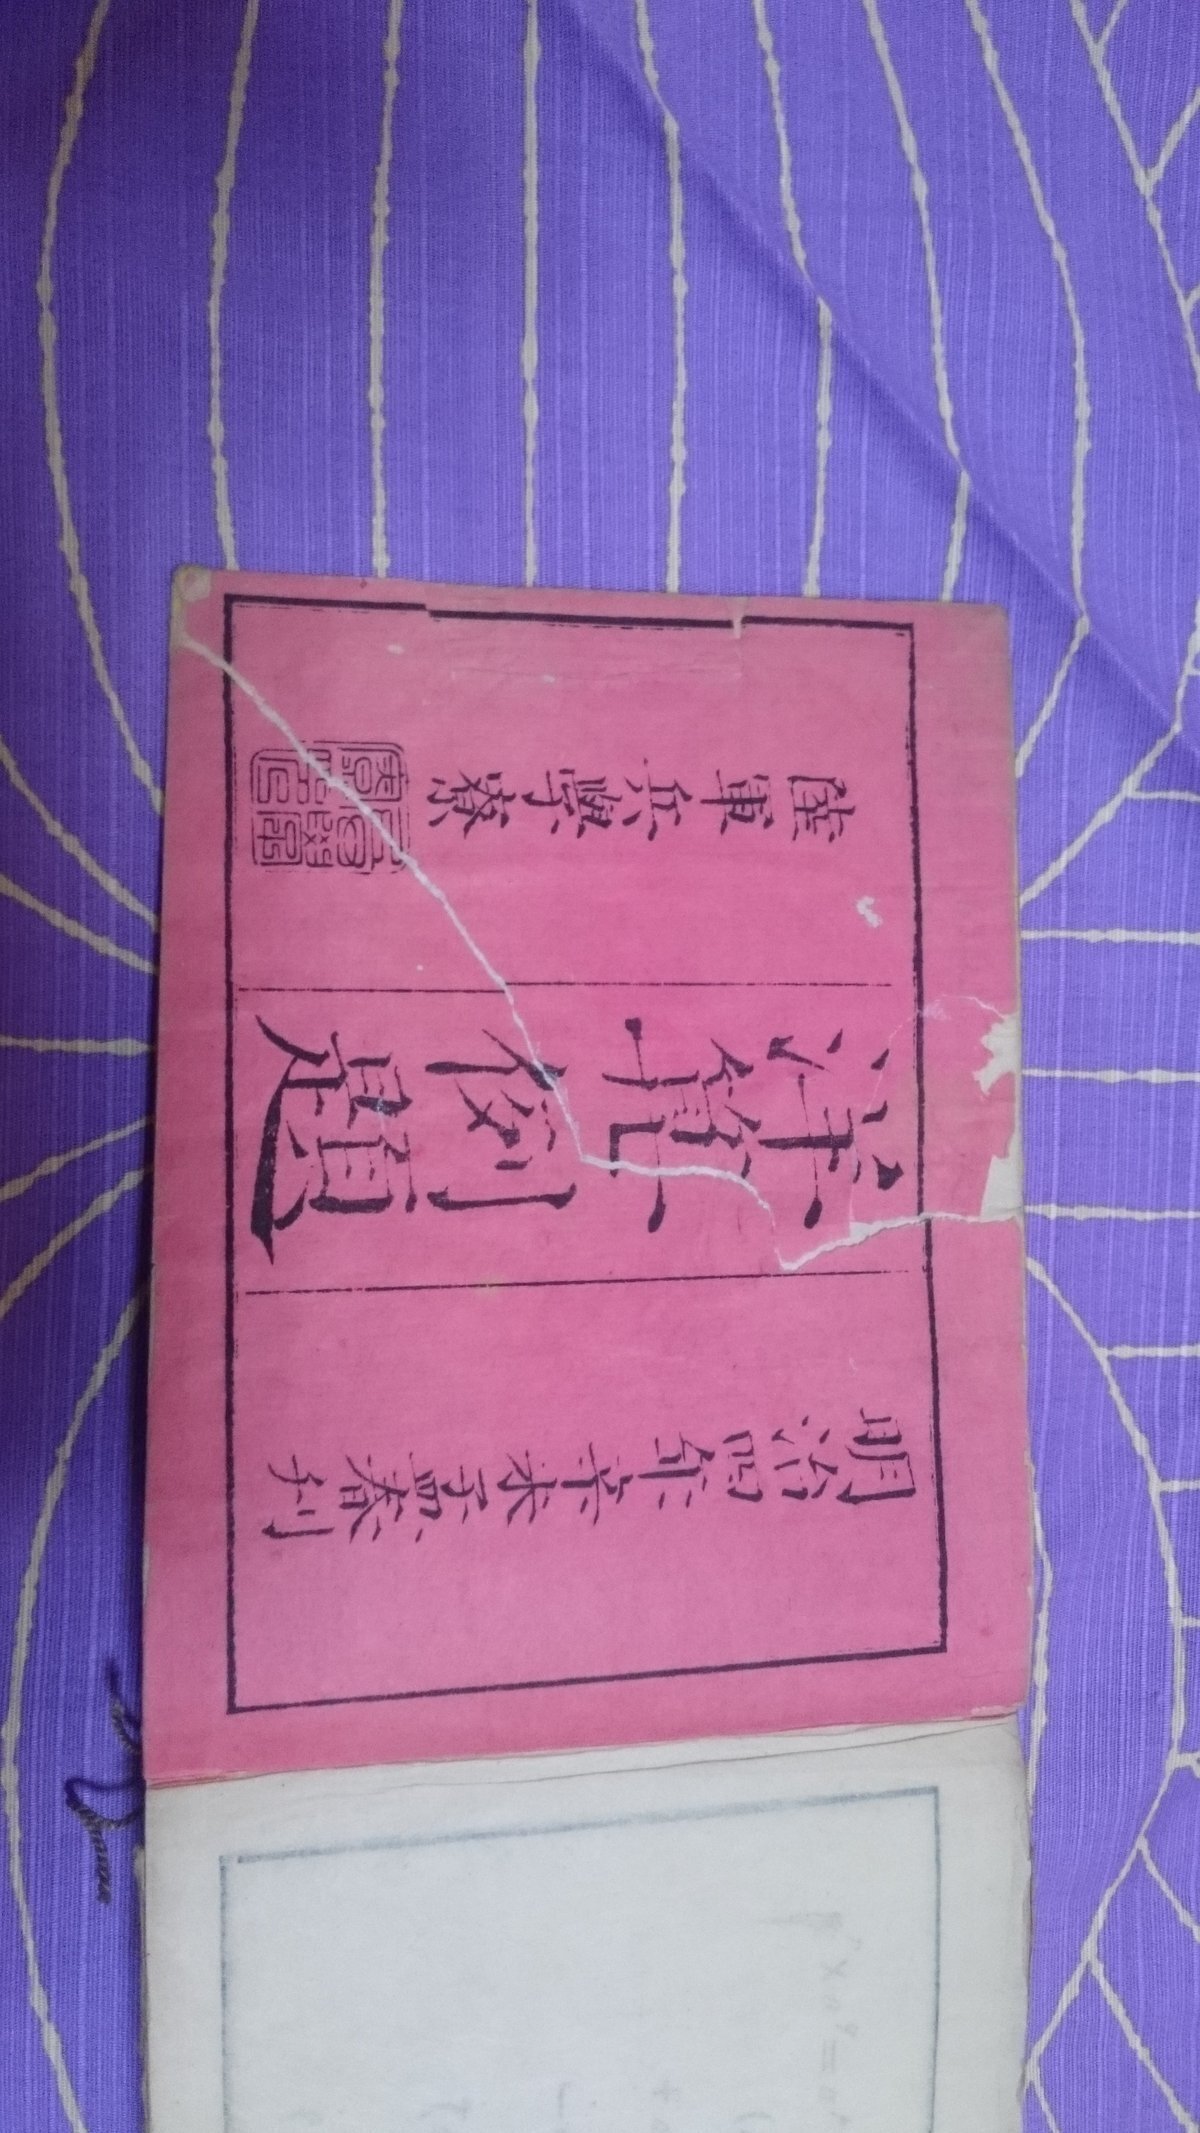 明治四年辛未孟春刊
洋算例題
陸軍兵學寮